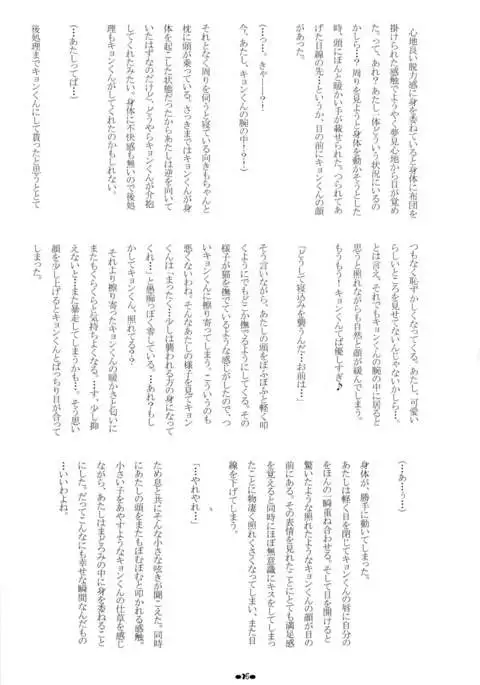 心地良い脱力感に身を委ねていると身体に布団を
掛けられた感触でようやく夢見心地から目が覚め
た。って、あれ？あたし一体どういう状況にいるの
かしら…？周りを見ようと身体を動かそうとした
時、頭にぽんと暖かい手が載せられた。つられてあ
げた目線の先…というか、目の前にキョンくんの顔
があった。
(…っ…。きゃ——っ！
今、あたし、キョンくんの腕の中！？！)
それとなく周りを伺うと寝ている向きもちゃんと
枕に頭が乗っている。さっきまではキョンくんが身
体を起こした状態だったからあたしは逆を向いて
いたはずなのだけど、どうやらキョンくんが介抱
してくれたみたい。身体に不快感も無いので後処
理もキョンくんがしてくれたのかもしれない。
(…あたしってば…)
後処理までキョンくんにして貰ったと思うととて
つもなく恥ずかしくなってくる。あたし、可愛い
らしいところを見せてないんじゃないかしら…、
とは言え、それでもキョンくんの腕の中に居ると
思うと照れながらも自然と顔が緩んでしまう。
もうもう！キョンくんてば優しすぎ♪
「どうして寝込みを襲うんだ…お前は…」
そう言いながら、あたしの頭をぽふぽふと軽く叩
いて、でもどこか撫でるようにしてくる。その
様子が猫を撫でているような感じがしたので、つ
いキョンくんに擦り寄ってしまう。こういうのも
悪くないわね。そんなあたしの様子を見てキョン
くんは「まったく…少しは襲われる方の身になって
くれ…」と愚痴っぽく零している。…あれ？もし
かしてキョンくん、照れてる？？
それより擦り寄ったキョンくんの暖かさと匂いに
またもくらくらと気持ちよくなる。…す、少し抑
えないと…また暴走してしまうかも…、そう思い
顔を少し上げるとキョンくんとばっちり目が合って
しまった。
(…あ…っ…)
身体が、勝手に動いてしまった。
あたしは軽く目を閉じてキョンくんの唇に自分の
をほんの一瞬重ね合わせる。そして目を開けると
驚いたような照れたようなキョンくんの顔が目の
前にある。その表情を見れたことにとても満足感
を覚えると同時にほぼ無意識にキスをしてしまっ
たことに物凄く照れくさくなってしまい、また目
線を下げてしまう。
「…やれやれ…」
ため息と共にそんな小さな呟きが聞こえた。そし
てあたしの頭をまたもぽむぽむと叩かれる感触。
小さい子をあやすようなキョンくんの仕草を感じ
ながら、あたしはまどろみの中に身を委ねること
にした。だってこんなにも幸せな瞬間なんだもの
…いいわよね。